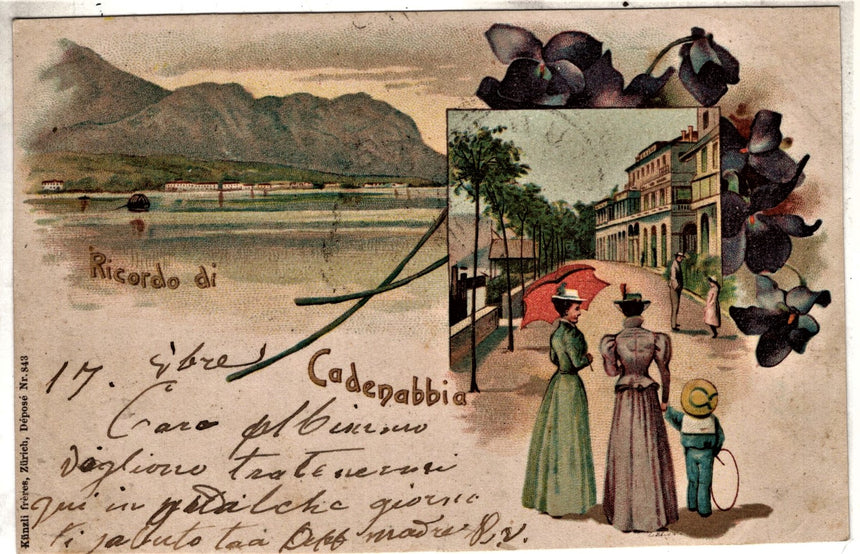 Ricordo di
Cadenabbia
17. 9bre
Caro Albinino
Vogliono trattenermi
qui in qualche giorno
Ti saluto tua madre R.V.
Künzli frères, Zürich, Déposé Nr. 843